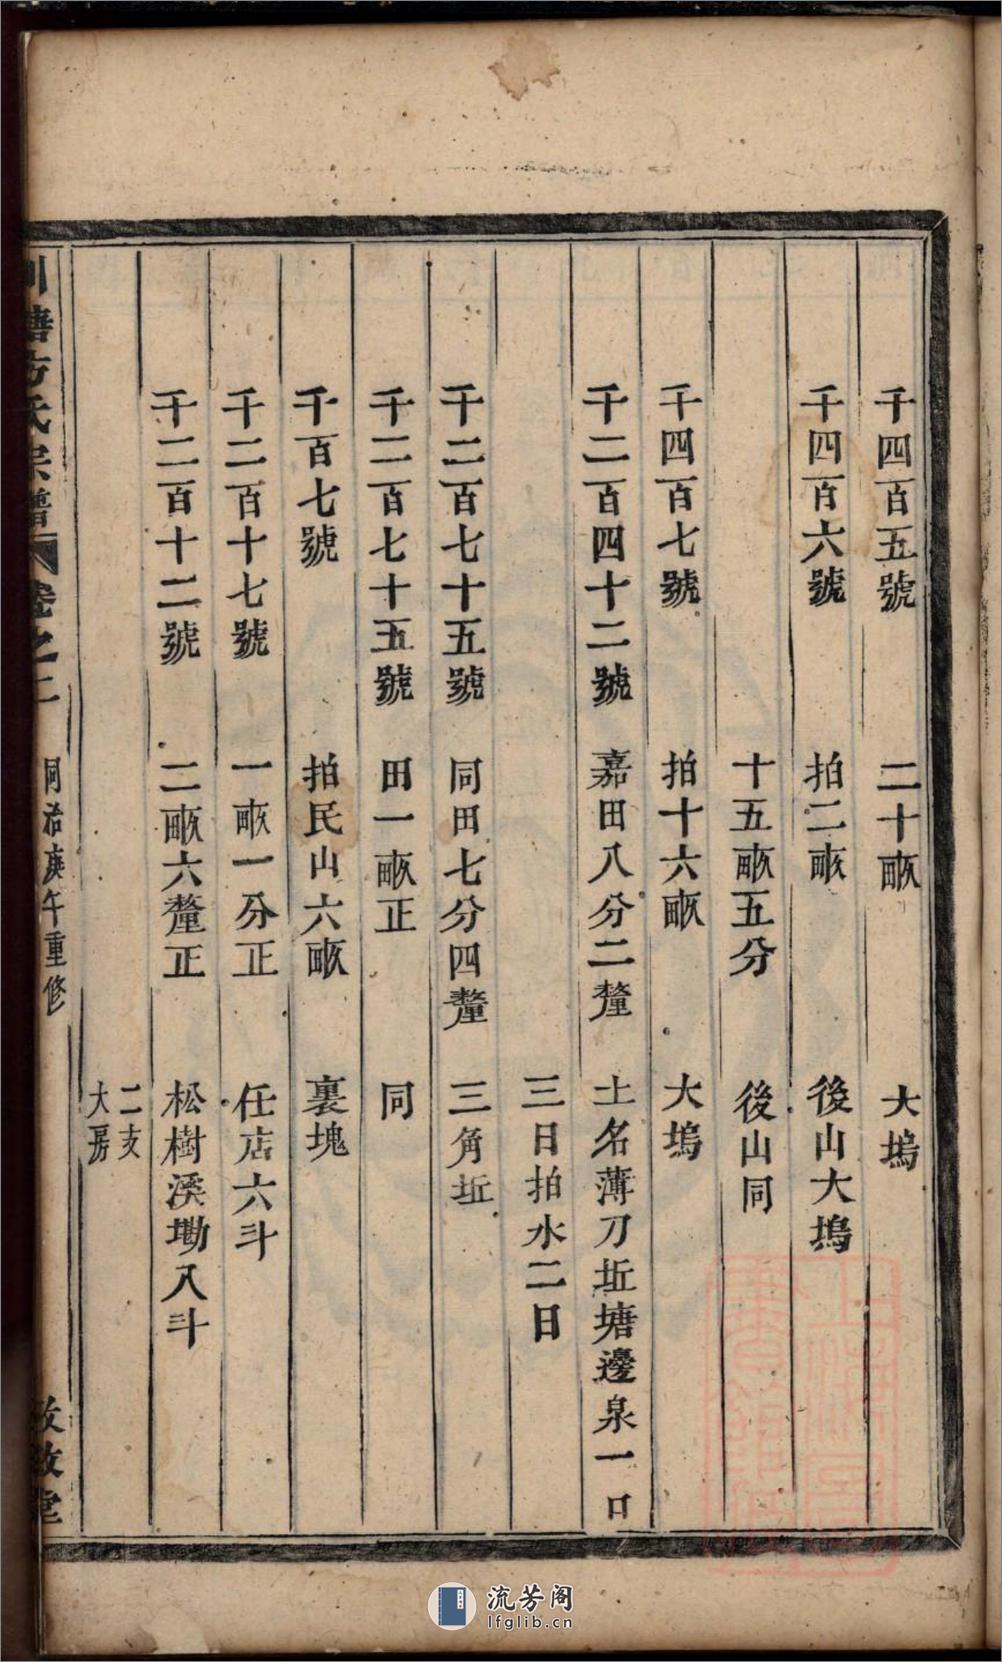 千四百五號 二十畝 大塢
千四百六號 拍二畝 後山大塢
十五畝五分 後山同
千四百七號 拍十六畝 大塢
千二百四十二號 嘉田八分二釐 土名薄刀坵塘邊泉一口
三日拍水二日
千二百七十五號 同田七分四釐 三角坵
千二百七十五號 田一畝正 同
千百七號 拍民山六畝 裏塊
千二百十七號 一畝一分正 任店六斗
千二百十二號 二畝六釐正 松樹溪墈八斗
二支
大房
川塘方氏宗譜 卷之二 同治庚午重修 敦敘堂
流芳阁
lfglib.cn